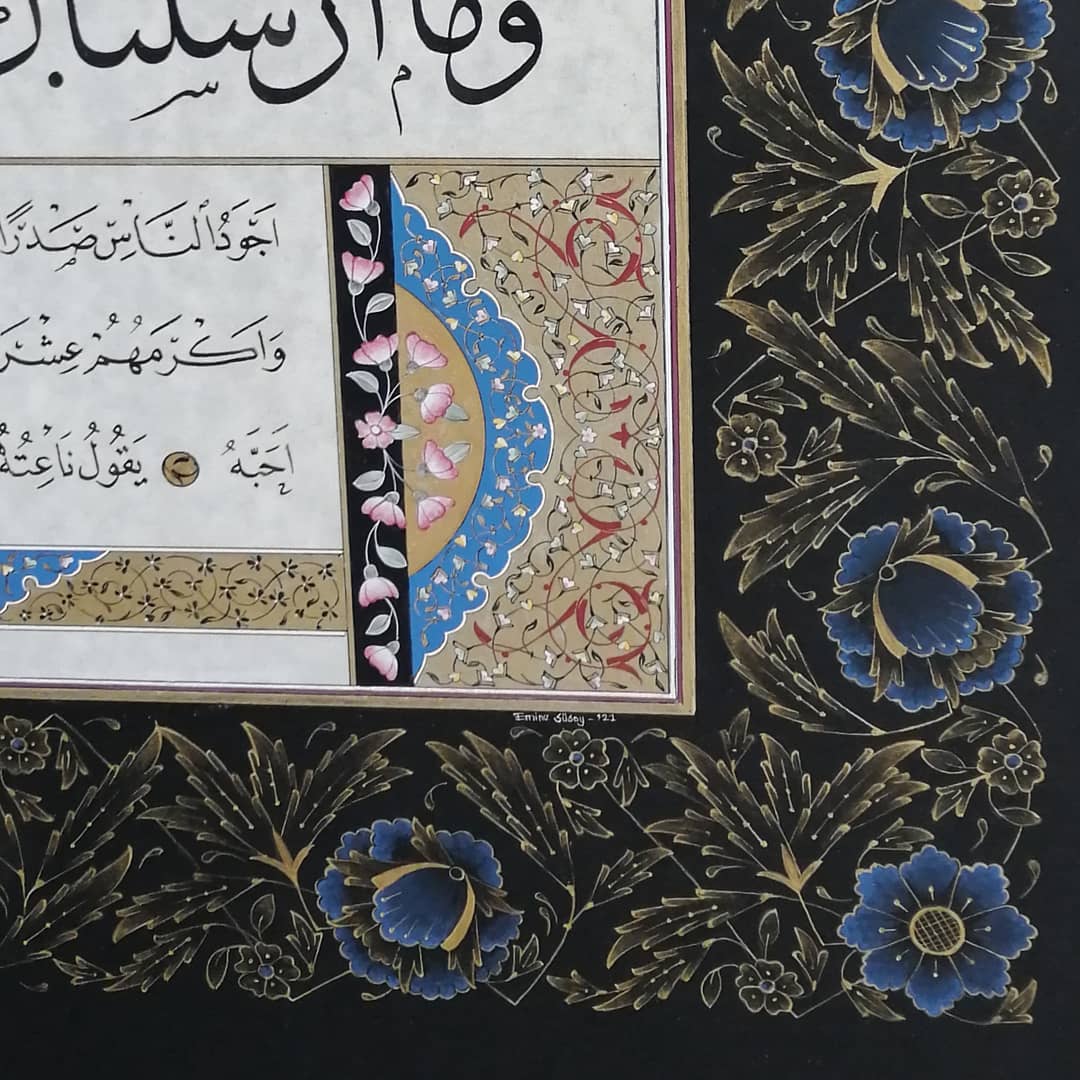 وما ارسلناك
اَجْوَدُ ٱلنَّاسِ صَدْرًا
وَاَكْرَمَهُمْ عِشْرَ
اَحَبَّهُ يَقُولُ نَاعِتُهُ
Emine - '21